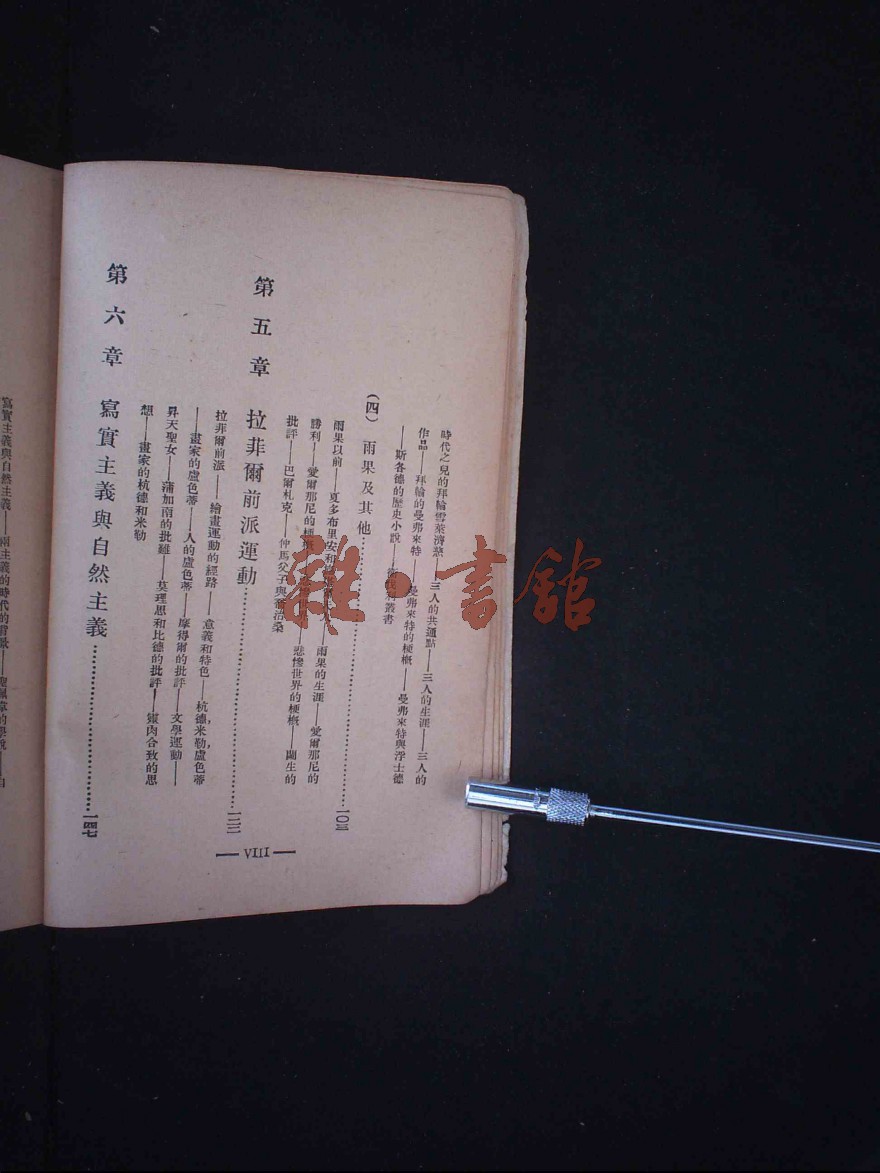 時代之兒的拜輪雪萊濟慈——三人的共通點——三人的生涯——三人的
作品——拜輪的曼弗來特——曼弗來特的梗概——曼弗來特與浮士德
——斯各德的歷史小說——叢書
(四) 雨果及其他………一〇三
雨果以前——夏多布里安和——雨果的生涯——愛爾那尼的
勝利——愛爾那尼的梗概——悲慘世界的梗概——關生的
批評——巴爾札克——仲馬父子與喬治桑
第五章 拉菲爾前派運動………一二二
拉菲爾前派——繪畫運動的經路——意義和特色——杭德,米勒,盧色蒂
——畫家的盧色蒂——人的盧色蒂——摩得爾的批評——文學運動——
昇天聖女——蒲加南的批難——莫理思和比德的批評——靈肉合致的思
想——畫家的杭德和米勒
第六章 寫實主義與自然主義………一四七
— VIII —
寫實主義與自然主義——兩主義的時代的背景——的學說——自
雜·書館